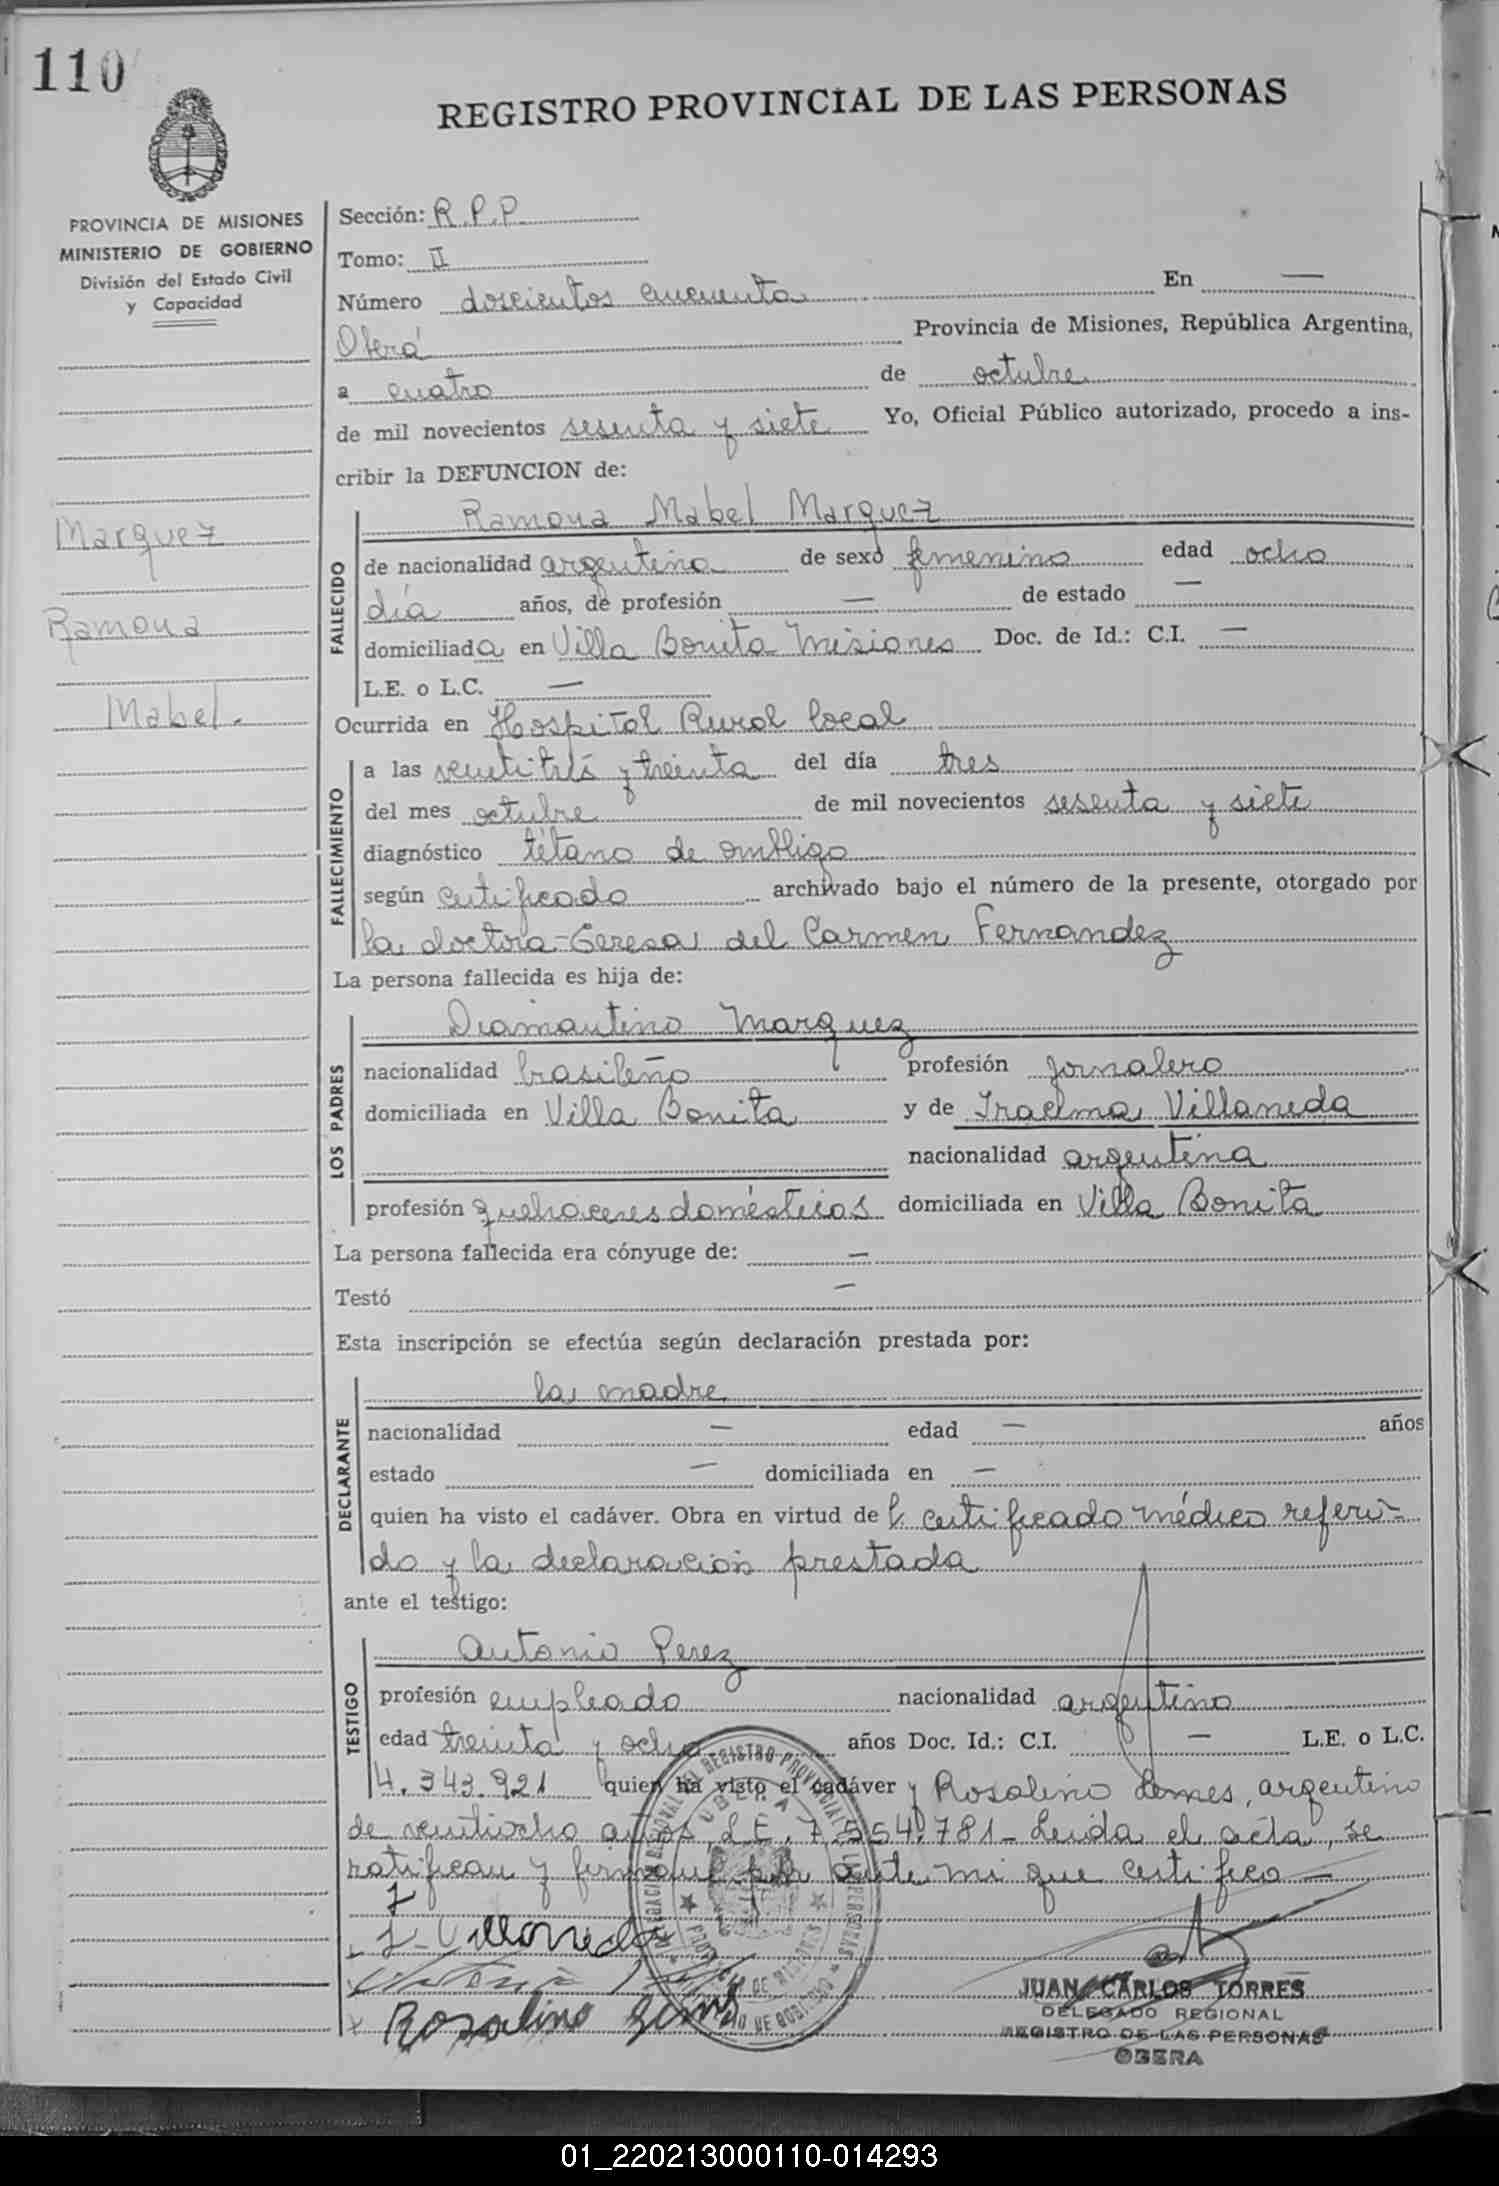 110
REGISTRO PROVINCIAL DE LAS PERSONAS
PROVINCIA DE MISIONES
MINISTERIO DE GOBIERNO
División del Estado Civil
y Capacidad
Marquez
Ramona
Mabel.
Sección: R.P.P.
Tomo: II
Número doscientos cincuenta En —
Oberá Provincia de Misiones, República Argentina,
a cuatro de octubre
de mil novecientos sesenta y siete Yo, Oficial Público autorizado, procedo a ins-
cribir la DEFUNCION de:
FALLECIDO
Ramona Mabel Marquez
de nacionalidad argentina de sexo femenino edad ocho
día años, de profesión — de estado —
domiciliada en Villa Bonita Misiones Doc. de Id.: C.I. —
L.E. o L.C. —
Ocurrida en Hospital Rural local
FALLECIMIENTO
a las veintitrés y treinta del día tres
del mes octubre de mil novecientos sesenta y siete
diagnóstico tétano de ombligo
según certificado archivado bajo el número de la presente, otorgado por
la doctora Teresa del Carmen Fernandez
La persona fallecida es hija de:
LOS PADRES
Diamantino Marquez
nacionalidad brasileño profesión jornalero
domiciliada en Villa Bonita y de Iracema Villaneda
nacionalidad argentina
profesión quehaceres domésticos domiciliada en Villa Bonita
La persona fallecida era cónyuge de: —
Testó —
Esta inscripción se efectúa según declaración prestada por:
DECLARANTE
la madre
nacionalidad — edad — años
estado — domiciliada en —
quien ha visto el cadáver. Obra en virtud de l certificado médico referi-
do y la declaración prestada
ante el testigo:
TESTIGO
Antonio Perez
profesión empleado nacionalidad argentino
edad treinta y ocho años Doc. Id.: C.I. — L.E. o L.C.
4.343.921 quien ha visto el cadáver y Rosalino Lemes, argentino
de veintiocho años, L.E. 7.554.781- Leida el acta, se
ratifican y firman por ante mi que certifico —
I. Villaneda
Rosalino
JUAN CARLOS TORRES
DELEGADO REGIONAL
REGISTRO DE LAS PERSONAS
OBERA
01_220213000110-014293